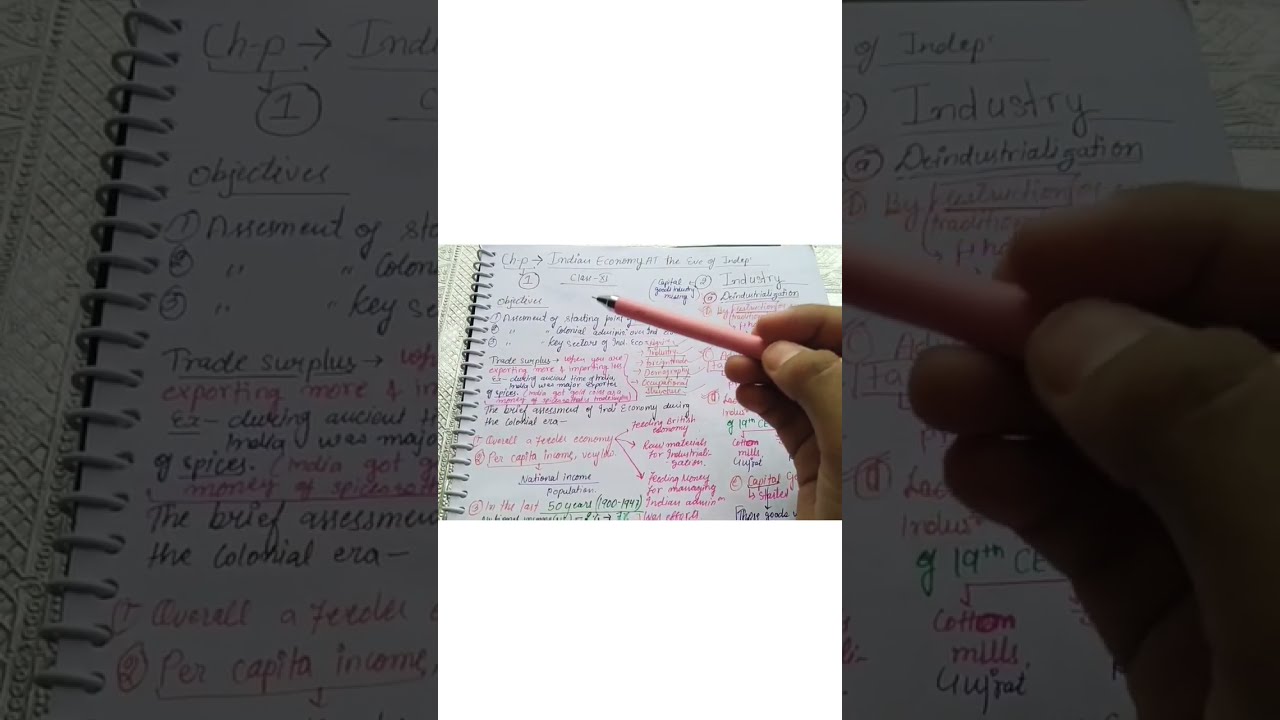 Ch-p → Indian Economy AT the Eve of Indep.
1
Class-XI
Objectives
① Assesment of starting point of
② " " Colonial adminis over Ind. Eco
③ " " Key sectors of Ind. Eco
→ Industry
→ Foreign trade
→ Demography
→ Occupational
structure
Trade surplus → When you are
exporting more & importing less
Ex - during ancient time of India,
India was major exporter
of spices. (India got gold coins as a
money of spices
The brief assessment of Ind Economy during
the colonial era—
① Overall a feeder economy
Feeding British
economy
Raw materials
for Industriali-
gation.
Feeding Money
for managing
Indian admin
② Per capita income, very low.
National income
Population.
③ In the last 50 years (1900-1947)
was effort
Capital
goods industry
missing
② Industry
ⓐ Deindustrialization
① By destruction of
traditional
ⓓ Lac
Indus
of 19th CE
Cotton
mills,
Gujrat
ⓔ Capital G
↳ started
These goods